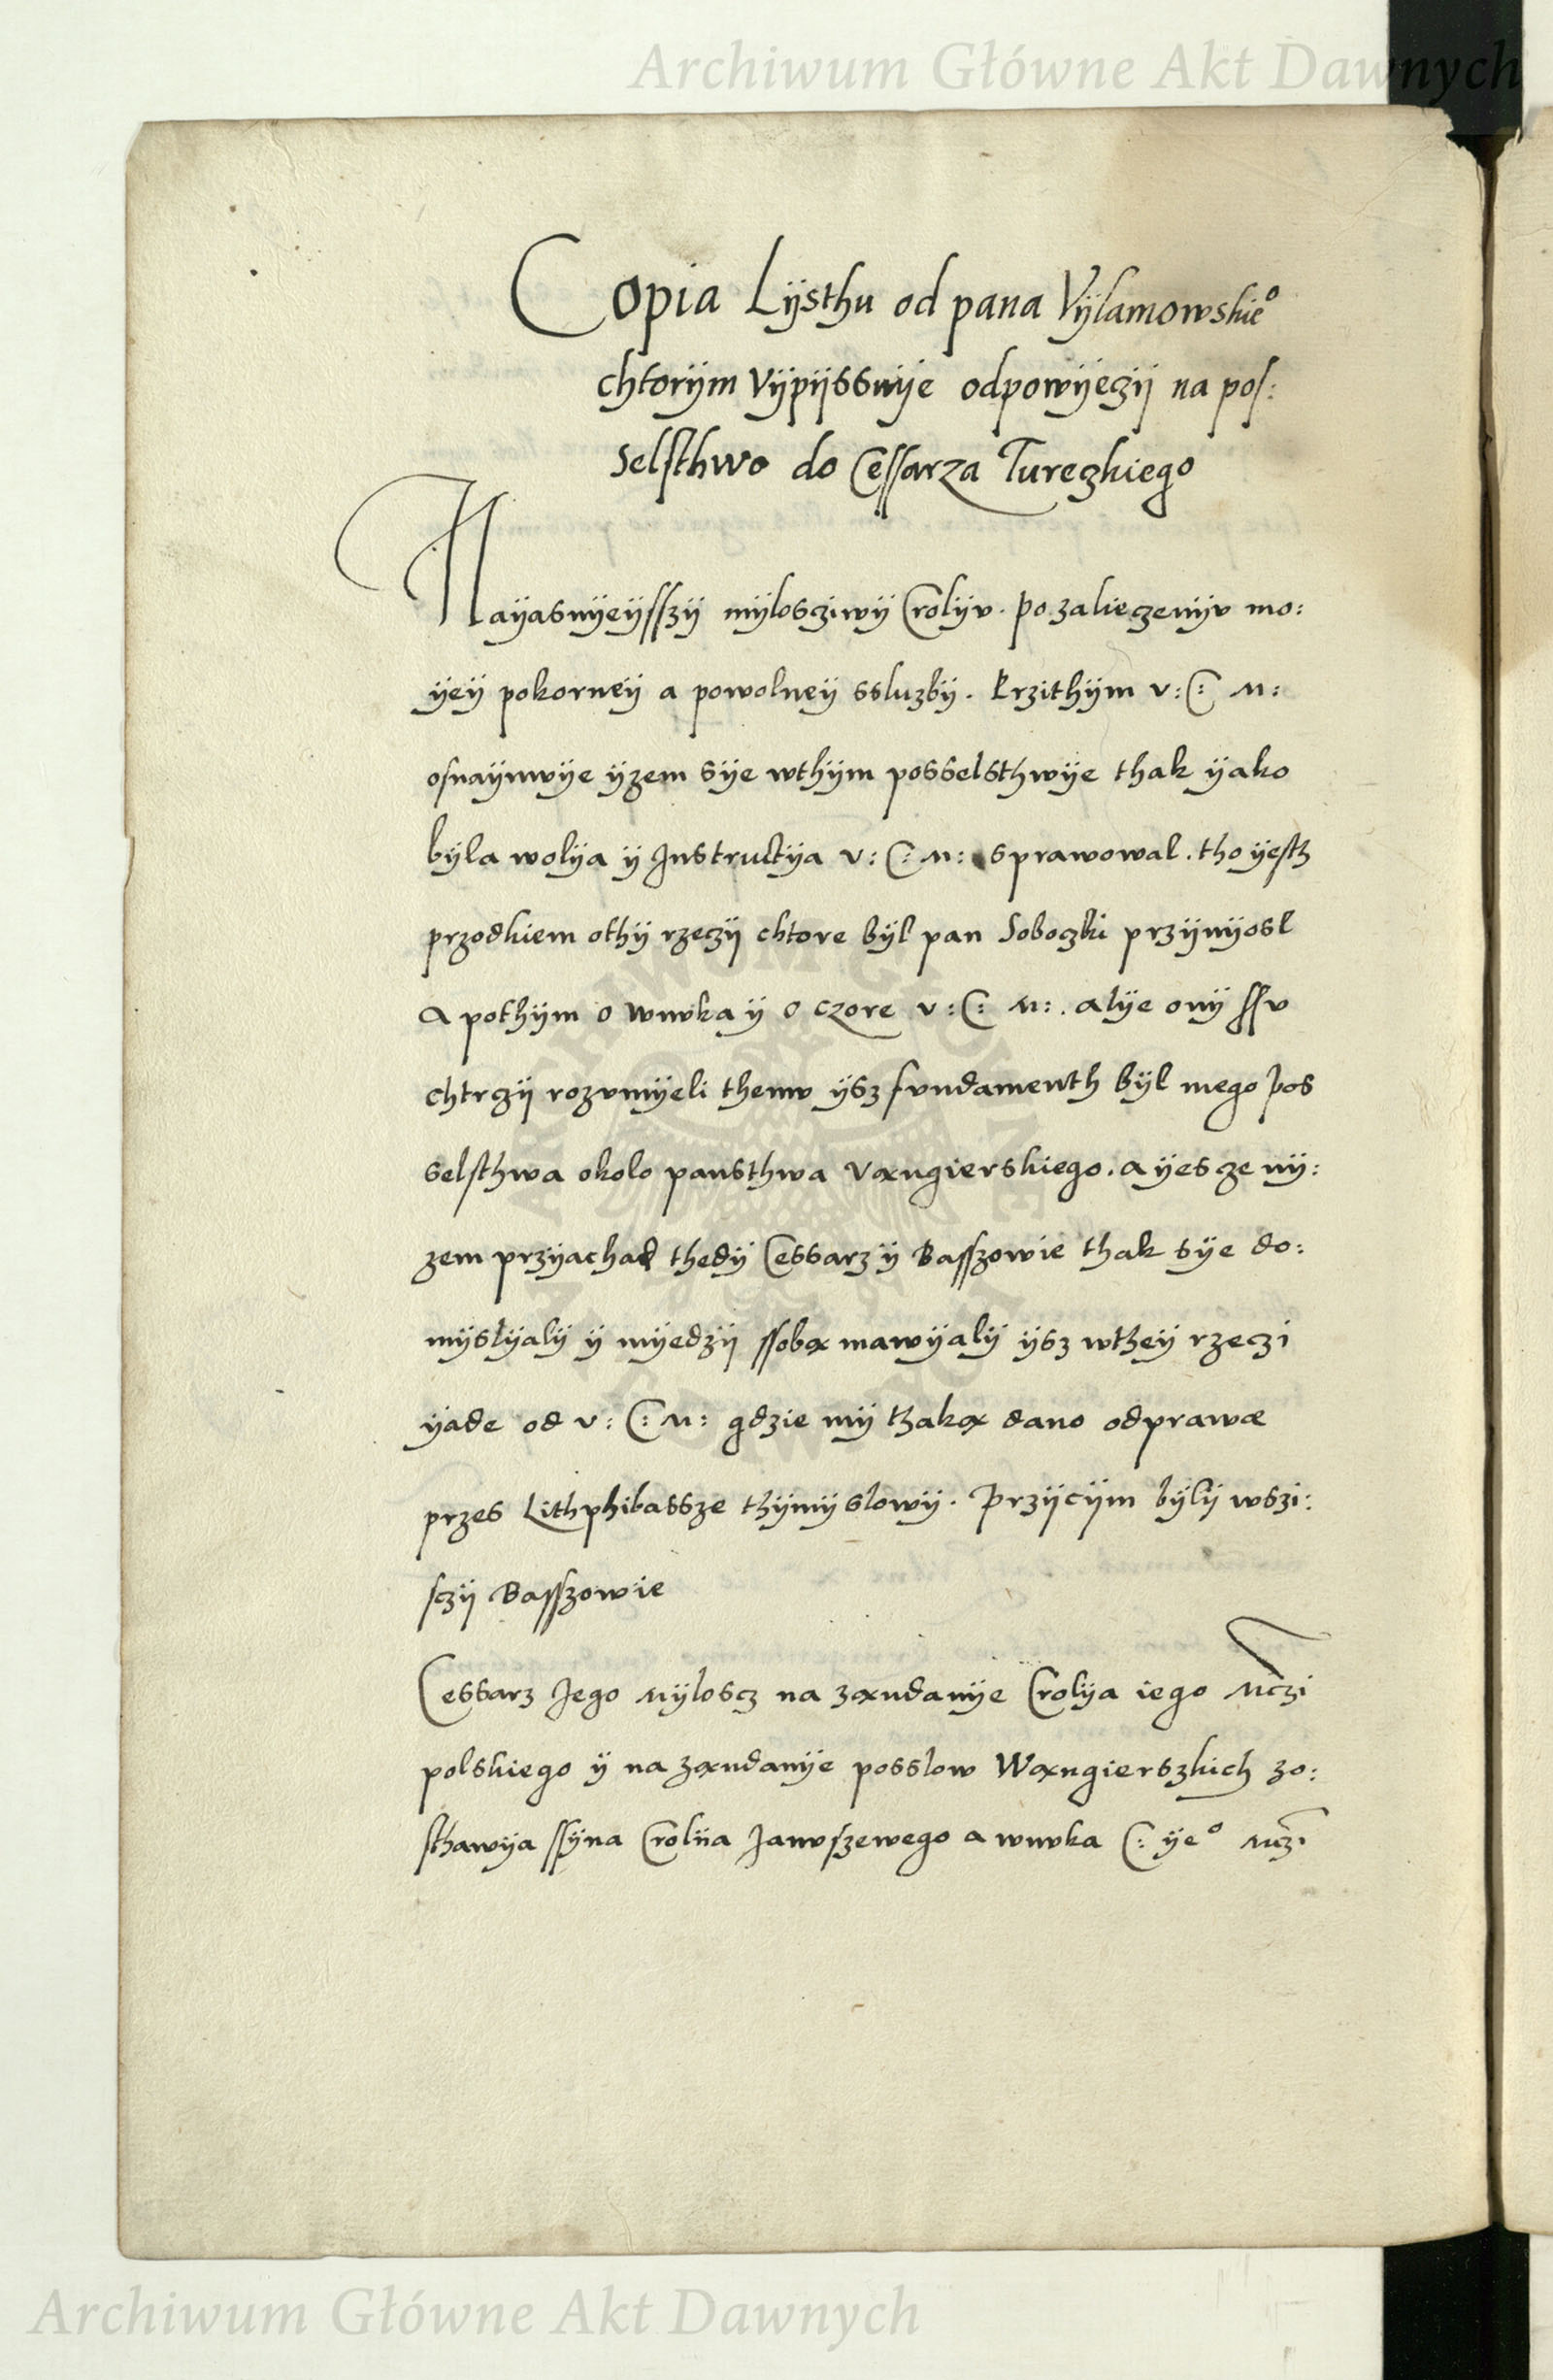 Archiwum Główne Akt Dawnych
Copia Lÿsthu od pana Vÿlamowskie°
chtorÿm Vÿpÿssuÿe odpowÿeczÿ na pos:
selsthwo do Cessarza Tureczkiego
Naÿasnÿeÿsszÿ mÿlosciwÿ Crolÿv. po zalieczenÿv mo:
ÿeÿ pokorneÿ a powolneÿ ssluzbÿ. Przithÿm v: C: M:
osnaÿmvÿe ÿzem sÿe wthÿm posselsthwÿe thak ÿako
bÿla wolÿa ÿ Instructÿa v: C: M: sprawowal. tho ÿestz
przodkiem othÿ rzeczÿ chtore bÿl pan Soboczki przÿnÿosl
a pothÿm o wnvka ÿ o czore v: C: M:. alÿe onÿ ssv
chtrzÿ rozvmÿeli themv ÿsz fvndamenth bÿl mego pos
selsthwa okolo pansthwa Vængierskiego. a ÿescze nÿ:
zem przÿachad thedÿ Cessarz ÿ Basszowie thak sÿe do:
mÿslÿalÿ ÿ mÿedzÿ ssobæ mawÿalÿ ÿsz wtheÿ rzeczi
ÿade od v: C: M: gdzie mÿ thakæ dano odprawæ
przes Lithphibassze thÿmÿ slowÿ. Przÿcÿm bÿlÿ wszi:
sczÿ Basszowie
Cessarz Jego Mÿloscz na zændanÿe Crolÿa iego Mczi
polskiego ÿ na zændanÿe posslow Wængierszkich zo:
sthawÿa ssÿna Crolÿa Janvszewego a wnvka C: ÿe° Mczi
Archiwum Główne Akt Dawnych